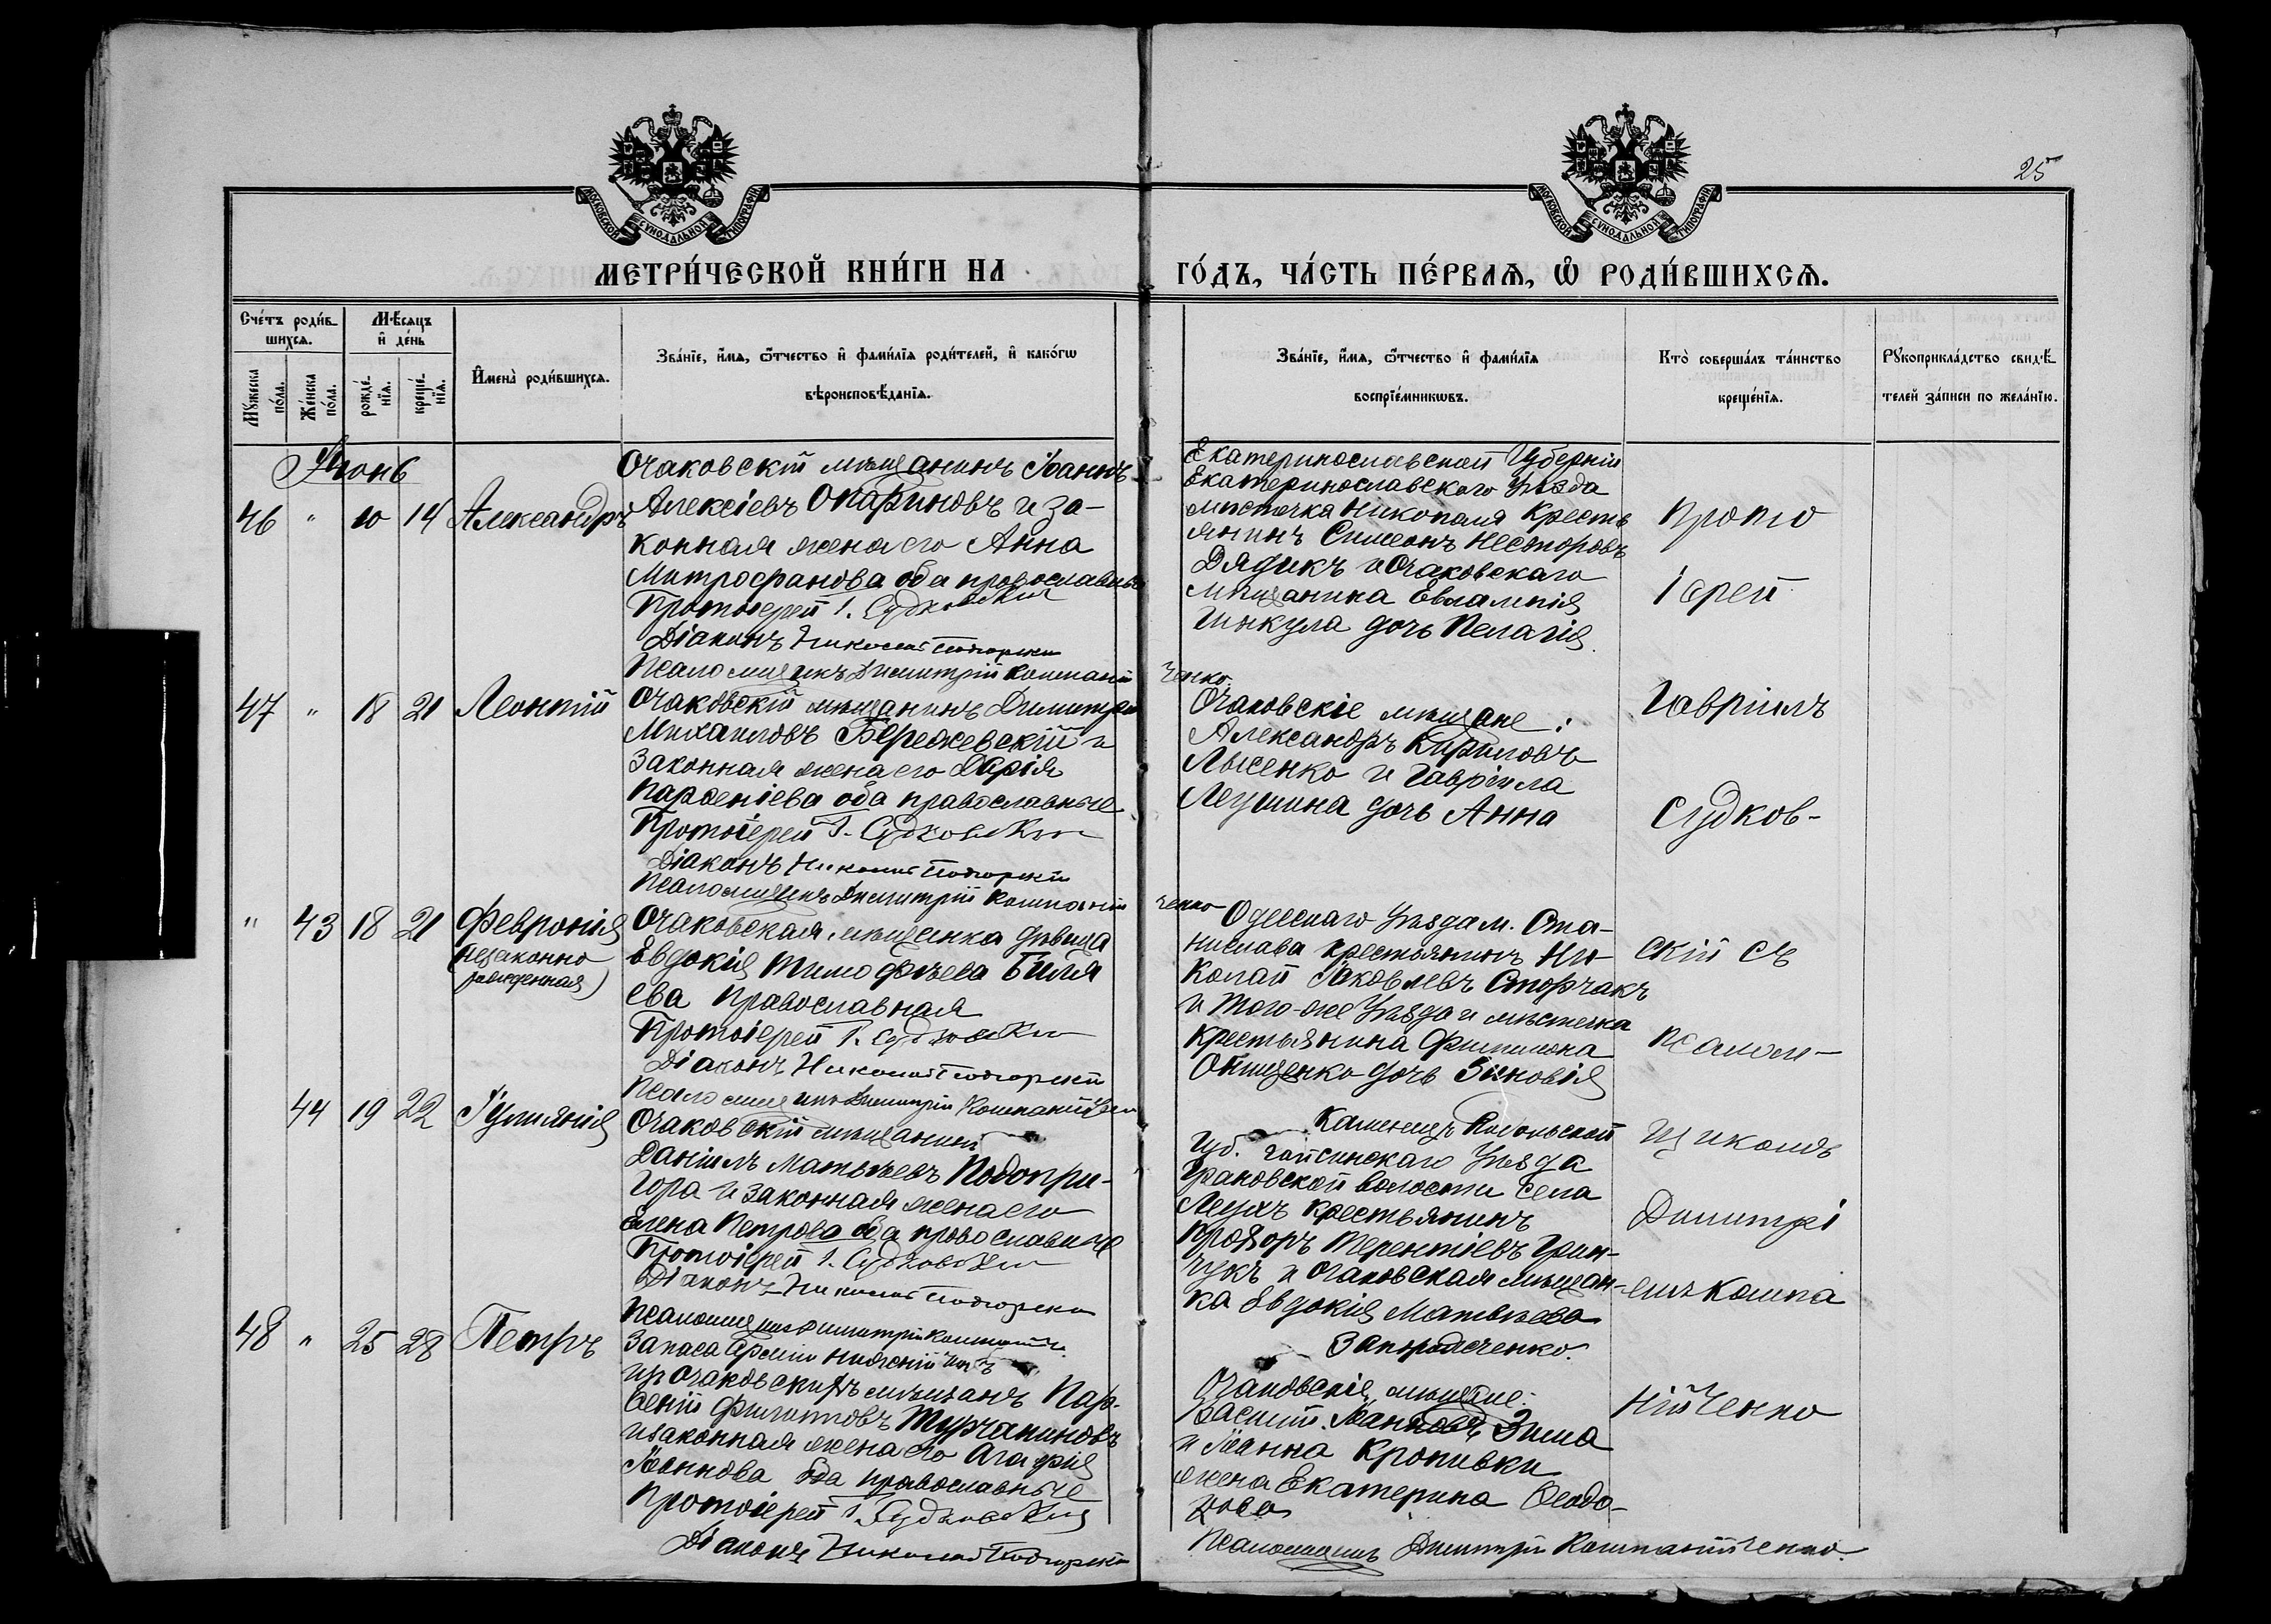 25
МОСКОВСКОЙ СУНОДАЛЬНОЙ ТИПОГРАФІИ
МОСКОВСКОЙ СУНОДАЛЬНОЙ ТИПОГРАФІИ
МЕТРИ́ЧЕСКОЙ КНИ́ГИ НА
ГО́ДЪ, ЧА́СТЬ ПЕ́РВАѦ, Ѡ҆ РОДИ́ВШИХСѦ.
Сче́тъ роди́в-
шихсѧ.
Мѣ́сѧцъ
и҆ де́нь
Мꙋ́жеска
по́ла.
Же́нска
по́ла.
рожде́-
нїѧ.
креще́-
нїѧ.
И҆мена̀ роди́вшихсѧ.
Зва́нїе, и҆́мѧ, ѻ҆́тчество и҆ фами́лїѧ роди́телей, и҆ како́гѡ
вѣроисповѣ́данїѧ.
Зва́нїе, и҆́мѧ, ѻ҆́тчество и҆ фами́лїѧ
воспрїе́мникѡвъ.
Кто̀ соверша́лъ та́инство
креще́нїѧ.
Рꙋкоприкла́дство свидѣ́-
телей за́писи по жела́нїю.
Іюнь
46 " 10 14 Александръ
Очаковскій мѣщанинъ Іоаннъ
Алексіевъ Опариновъ и за-
конная жена его Анна
Митрофанова оба православные
Протоіерей Г. Судковскій
Діаконъ Николай Подгорскій
Псаломщикъ Димитрій Компаній
ченко.
Екатеринославской Губерніи
Екатеринославского Уѣзда
мѣстечка Никополя Кресть
янинъ Симеонъ Несторовъ
Дядикъ и Очаковскаго
мѣщанина Евлампія
дочь Пелагія
Прото
іерей
47 " 18 21 Леонтій
Очаковскій мѣщанинъ Димитрій
Михаиловъ Бережевскій и
законная жена его Дарія
Парѳеніева оба православные
Протоіерей Г. Судковскій
Діаконъ Николай Подгорскій
Псаломщикъ Димитрій Компаній
ченко
Очаковскіе мѣщане:
Александръ Кириловъ
Лысенко и Гавріила
Леушина дочь Анна
Гавріилъ
Судков-
" 43 18 21 Февронія
(незаконно
рожденная)
Очаковская мѣщанка дѣвица
Евдокія Тимофѣева Биля
ева православная
Протоіерей Г. Судковскій
Діаконъ Николай Подгорскій
Псаломщикъ Димитрій Компанійченко
Одесскаго Уѣзда м. Ста-
нислава крестьянинъ Ни-
колай Іаковлевъ Сторчакъ
и того-же Уѣзда и мѣстечка
крестьянина Филимона
Онищенко дочь Зиновія
скій съ
псалом-
44 19 22 Іуліанія
Очаковскій мѣщанинъ
Даніилъ Матѳѣевъ Подопри-
гора и законная жена его
Елена Петрова оба православные
Протоіерей Г. Судковскій
Діаконъ Николай Подгорскій
Псаломщикъ Димитрій
Каменецъ Подольской
Губ. Гайсинскаго Уѣзда
Грановской волости села
Леухъ крестьянинъ
Прохоръ Терентіевъ Грин-
чукъ и Очаковская мѣщан-
ка Евдокія Матѳѣева
щикомъ
Димитрі
емъ Компа
48 " 25 28 Петръ
Запаса Арміи нижній чинъ
из Очаковскихъ мѣщанъ Пар-
ѳеній Филипповъ Турчаниновъ
и законная жена его Агафія
Іоаннова оба православные
Протоіерей Г. Судковскій
Діаконъ Николай Подгорскій
Очаковскіе мѣщане:
Василій Іоанновъ Зима
и Іоанна Кропивки
жена Екатерина Ѳеодо-
рова
Псаломщикъ Димитрій Компанійченко.
нійченко